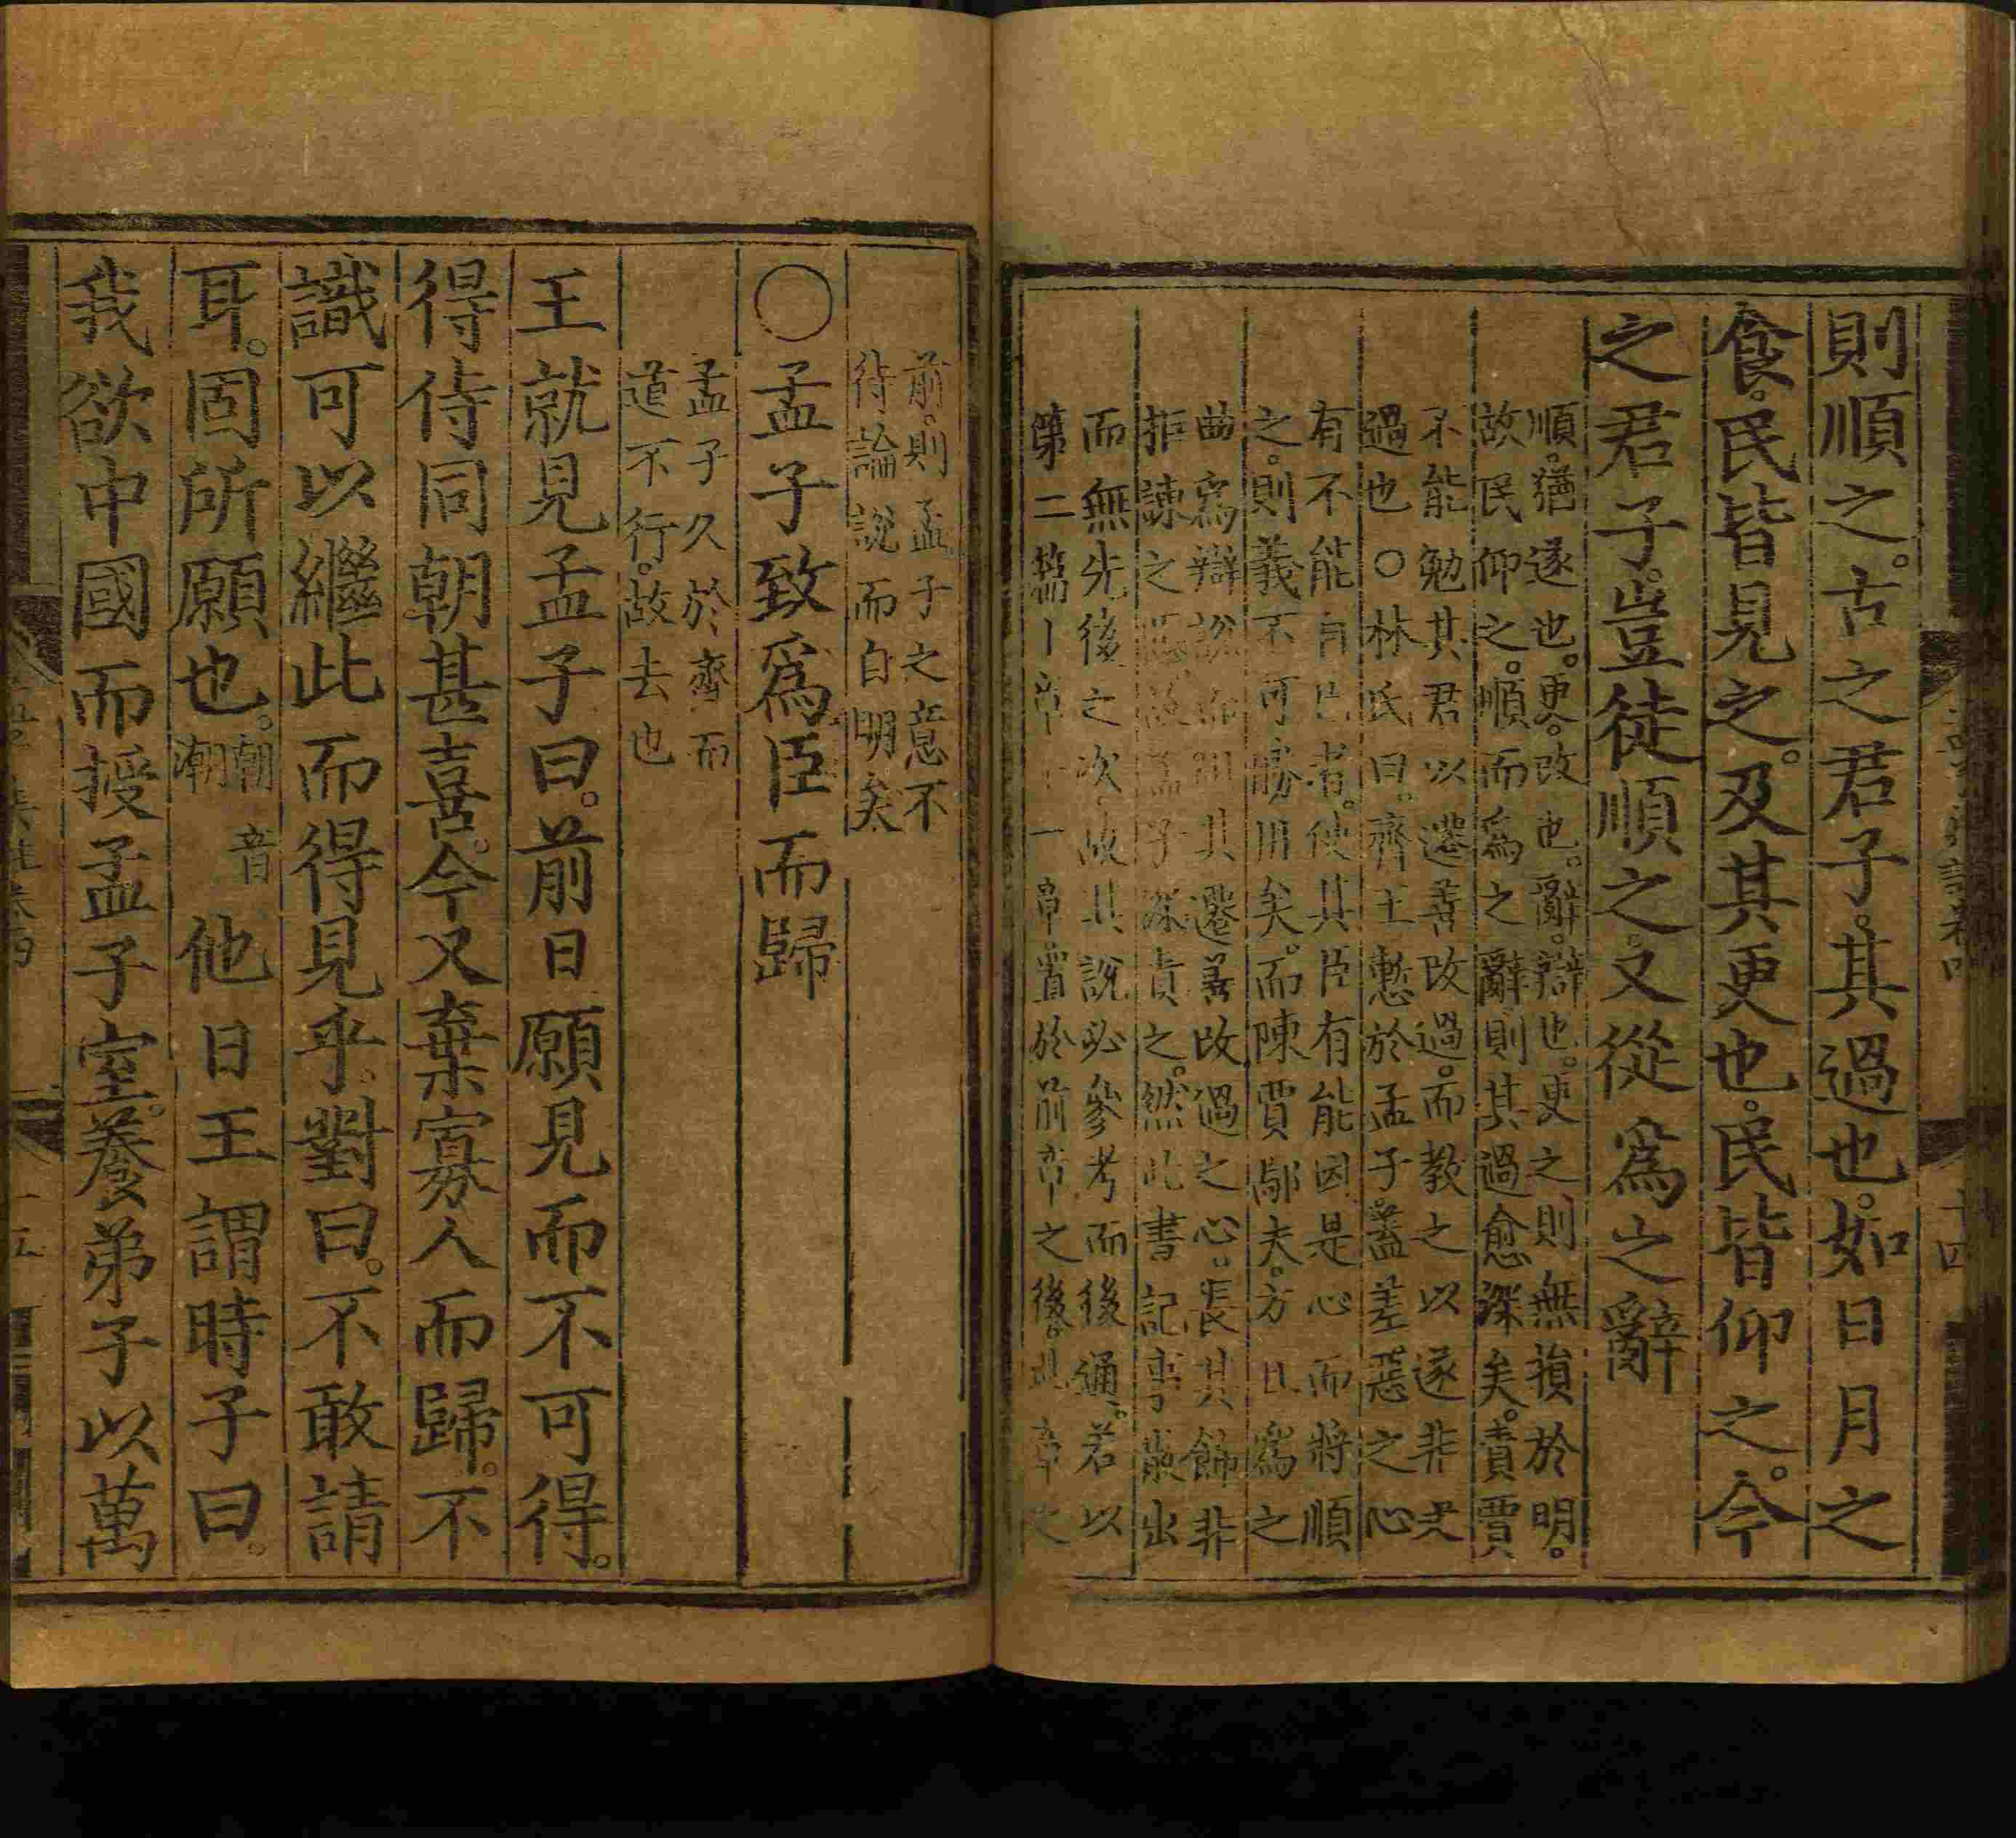 則順之。古之君子。其過也。如日月之
食。民皆見之。及其更也。民皆仰之。今
之君子。豈徒順之。又從爲之辭
順。猶遂也。更。改也。辭。辯也。更之則無損於明。
故民仰之。順而爲之辭則其過愈深矣。責賈
不能勉其君以遷善改過。而教之以遂非文
過也○林氏曰。齊王慙於孟子。蓋羞惡之心
有不能自已者。使其臣有能因是心而將順
之。則義不可勝用矣。而陳賈鄙夫。方且爲之
曲爲辯說。而沮其遷善改過之心。長其飾非
拒諫之惡。故孟子深責之。然此書記事散出
而無先後之次。故其說必參考而後通。若以
第二篇十章十一章。置於前章之後。此章之
前。則孟子之意不
待論說而自明矣
○孟子致爲臣而歸
孟子久於齊而
道不行。故去也
王就見孟子曰。前日願見而不可得。
得侍同朝甚喜。今又棄寡人而歸。不
識可以繼此而得見乎。對曰。不敢請
耳。固所願也。朝音潮他日王謂時子曰。
我欲中國而授孟子室。養弟子以萬